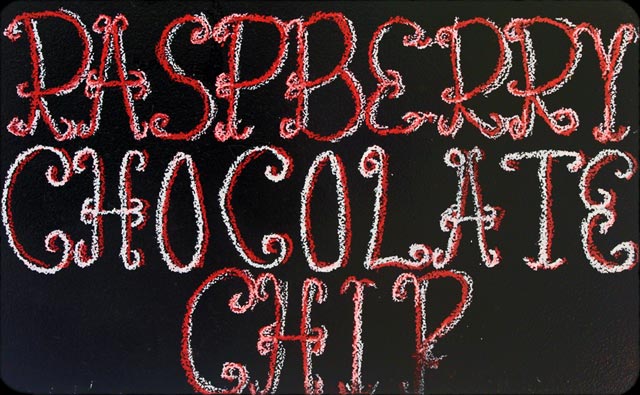 RASPBERRY
CHOCOLATE
CHIP